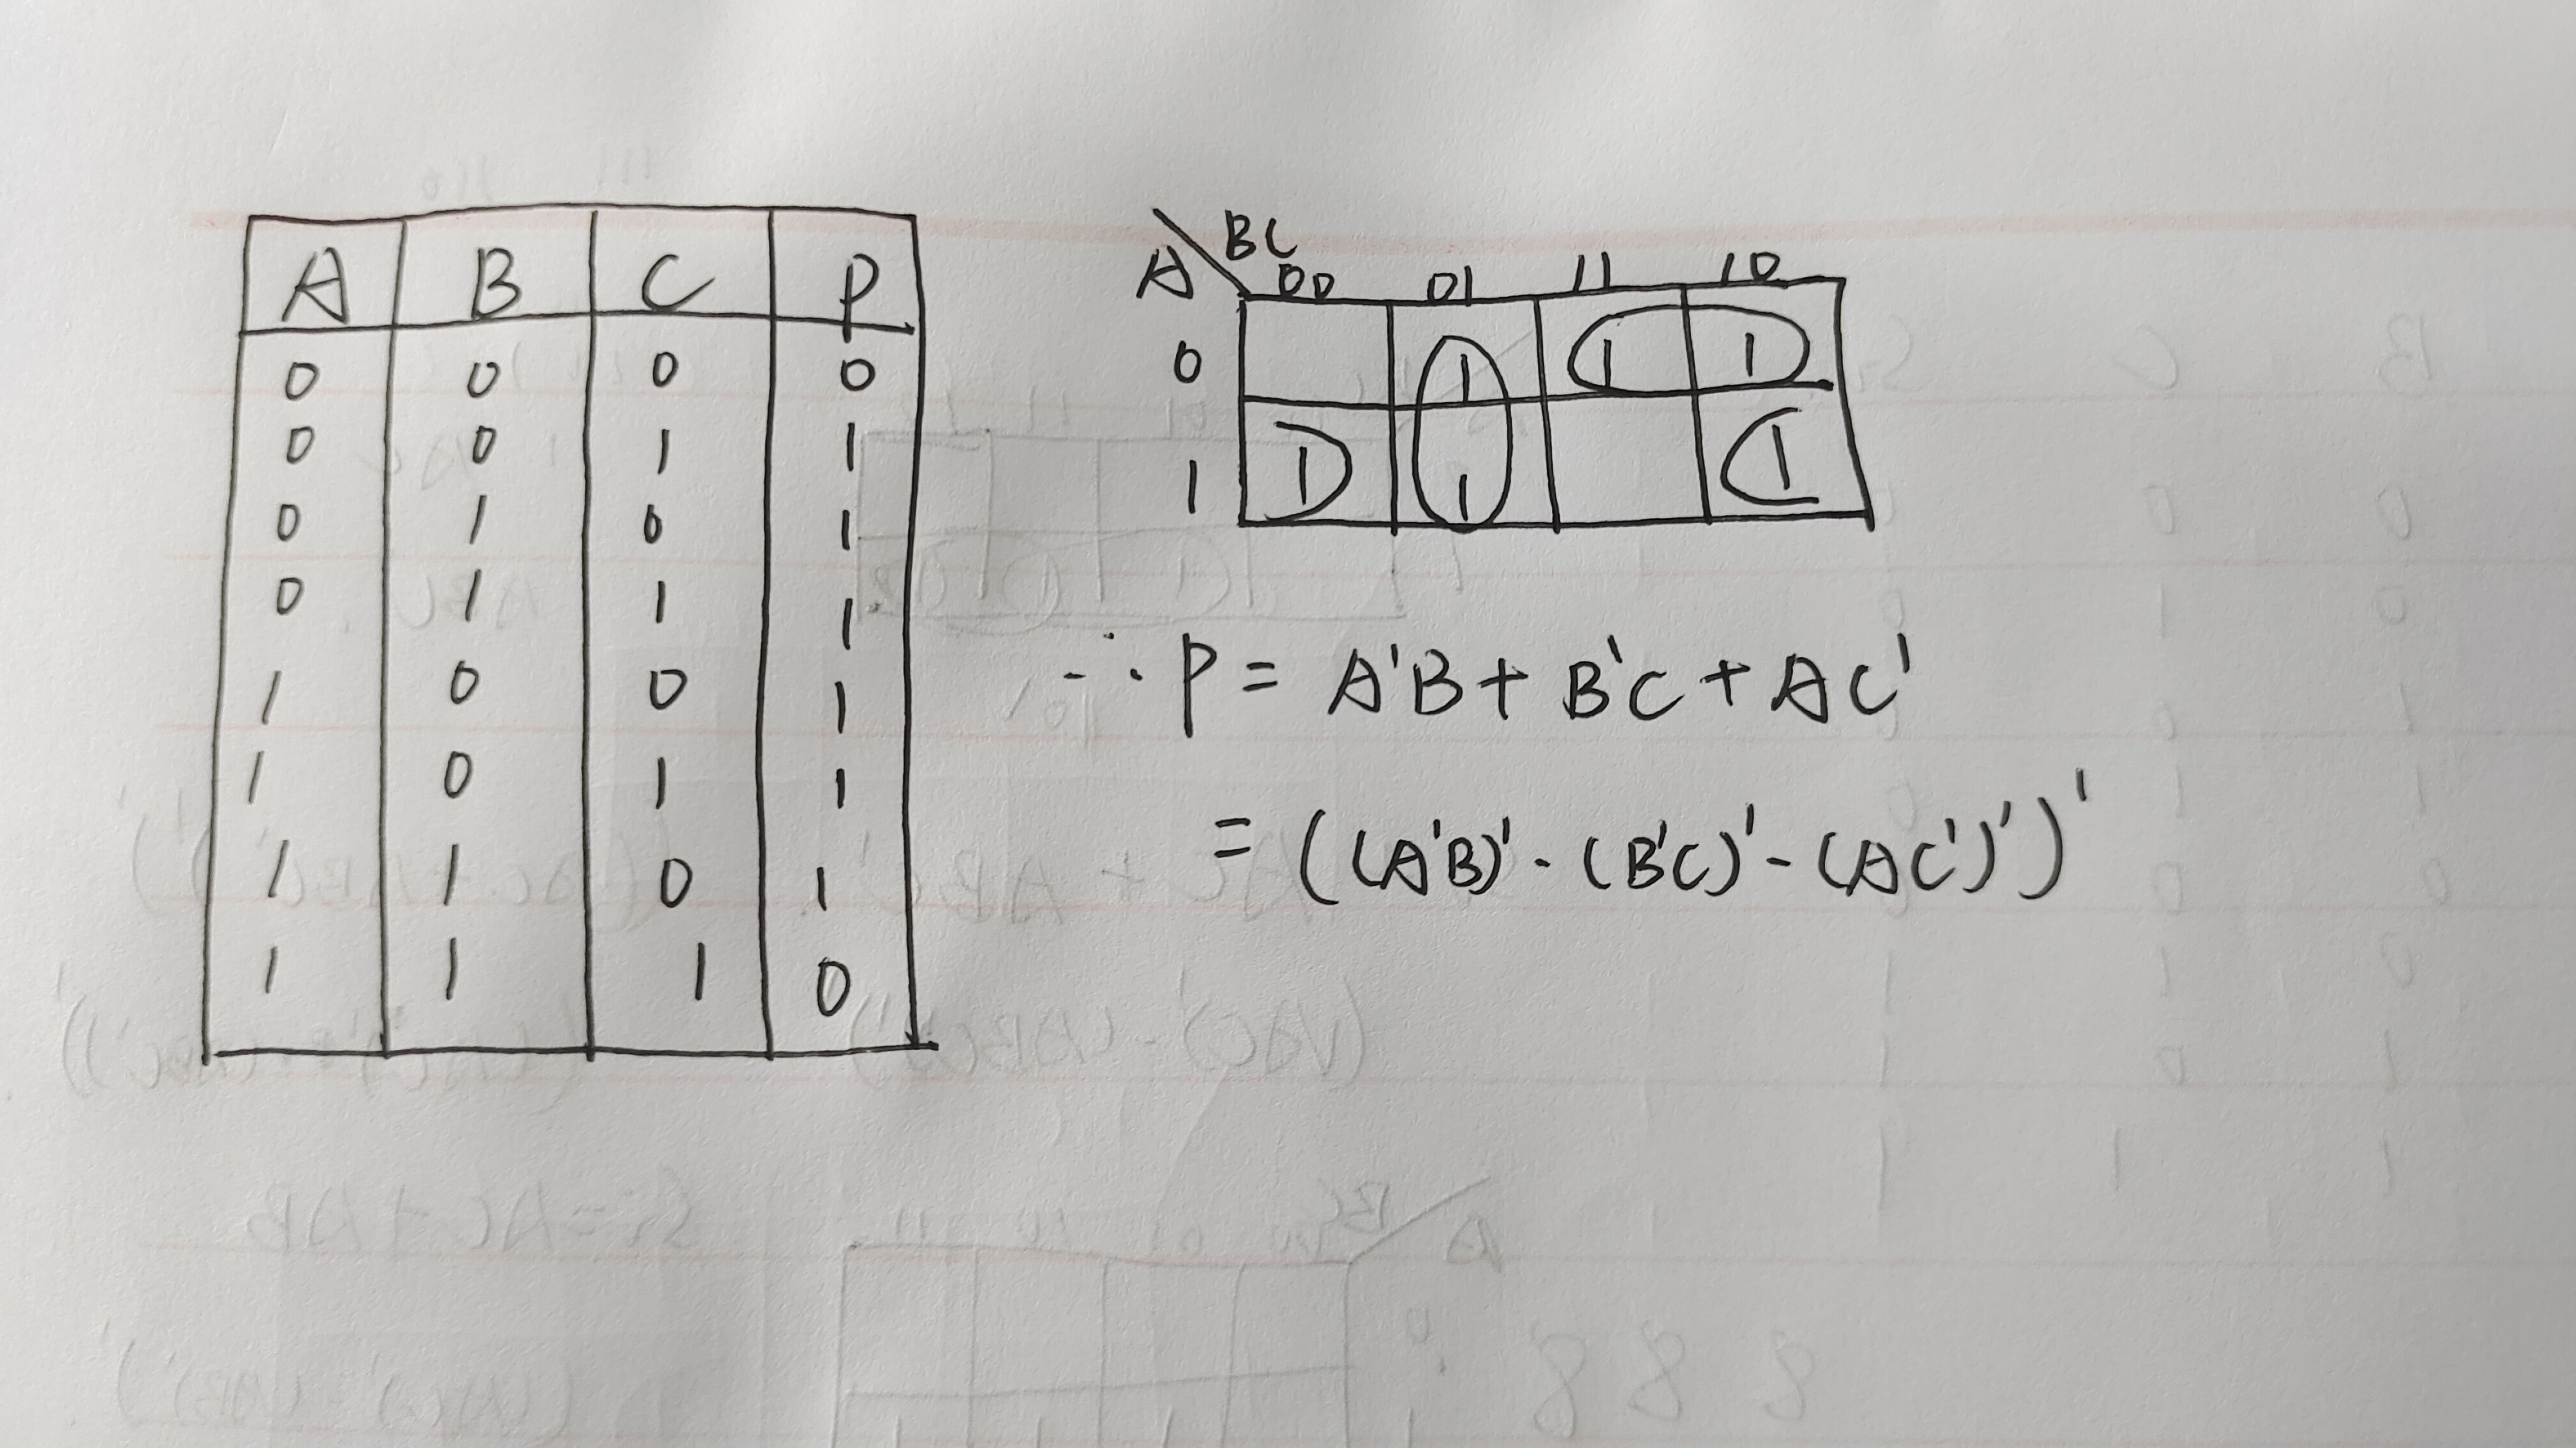 A B C P
0 0 0 0
0 0 1 1
0 1 0 1
0 1 1 1
1 0 0 1
1 0 1 1
1 1 0 1
1 1 1 0
BC
A 00 01 11 10
0 1 1 1
1 1 1 1
∴ P = A'B + B'C + AC'
= ((A'B)' · (B'C)' · (AC')')'